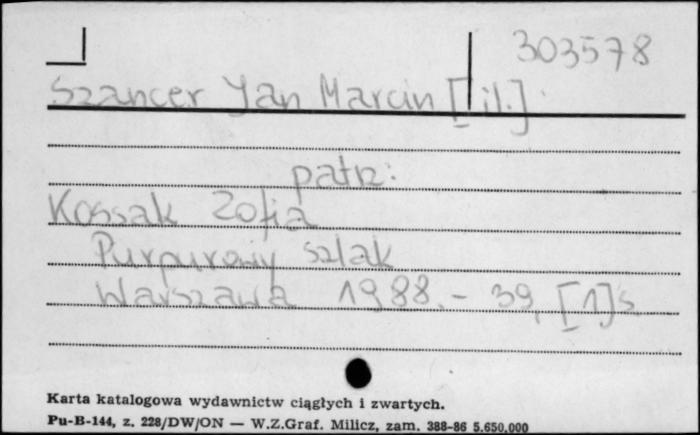 303578
Szancer Jan Marcin [il.]
patrz:
Kossak Zofia
Purpurowy szlak
Warszawa 1988. - 39, [1] s.
Karta katalogowa wydawnictw ciągłych i zwartych.
Pu-B-144, z. 228/DW/ON — W.Z.Graf. Milicz, zam. 388-86 5.650.000